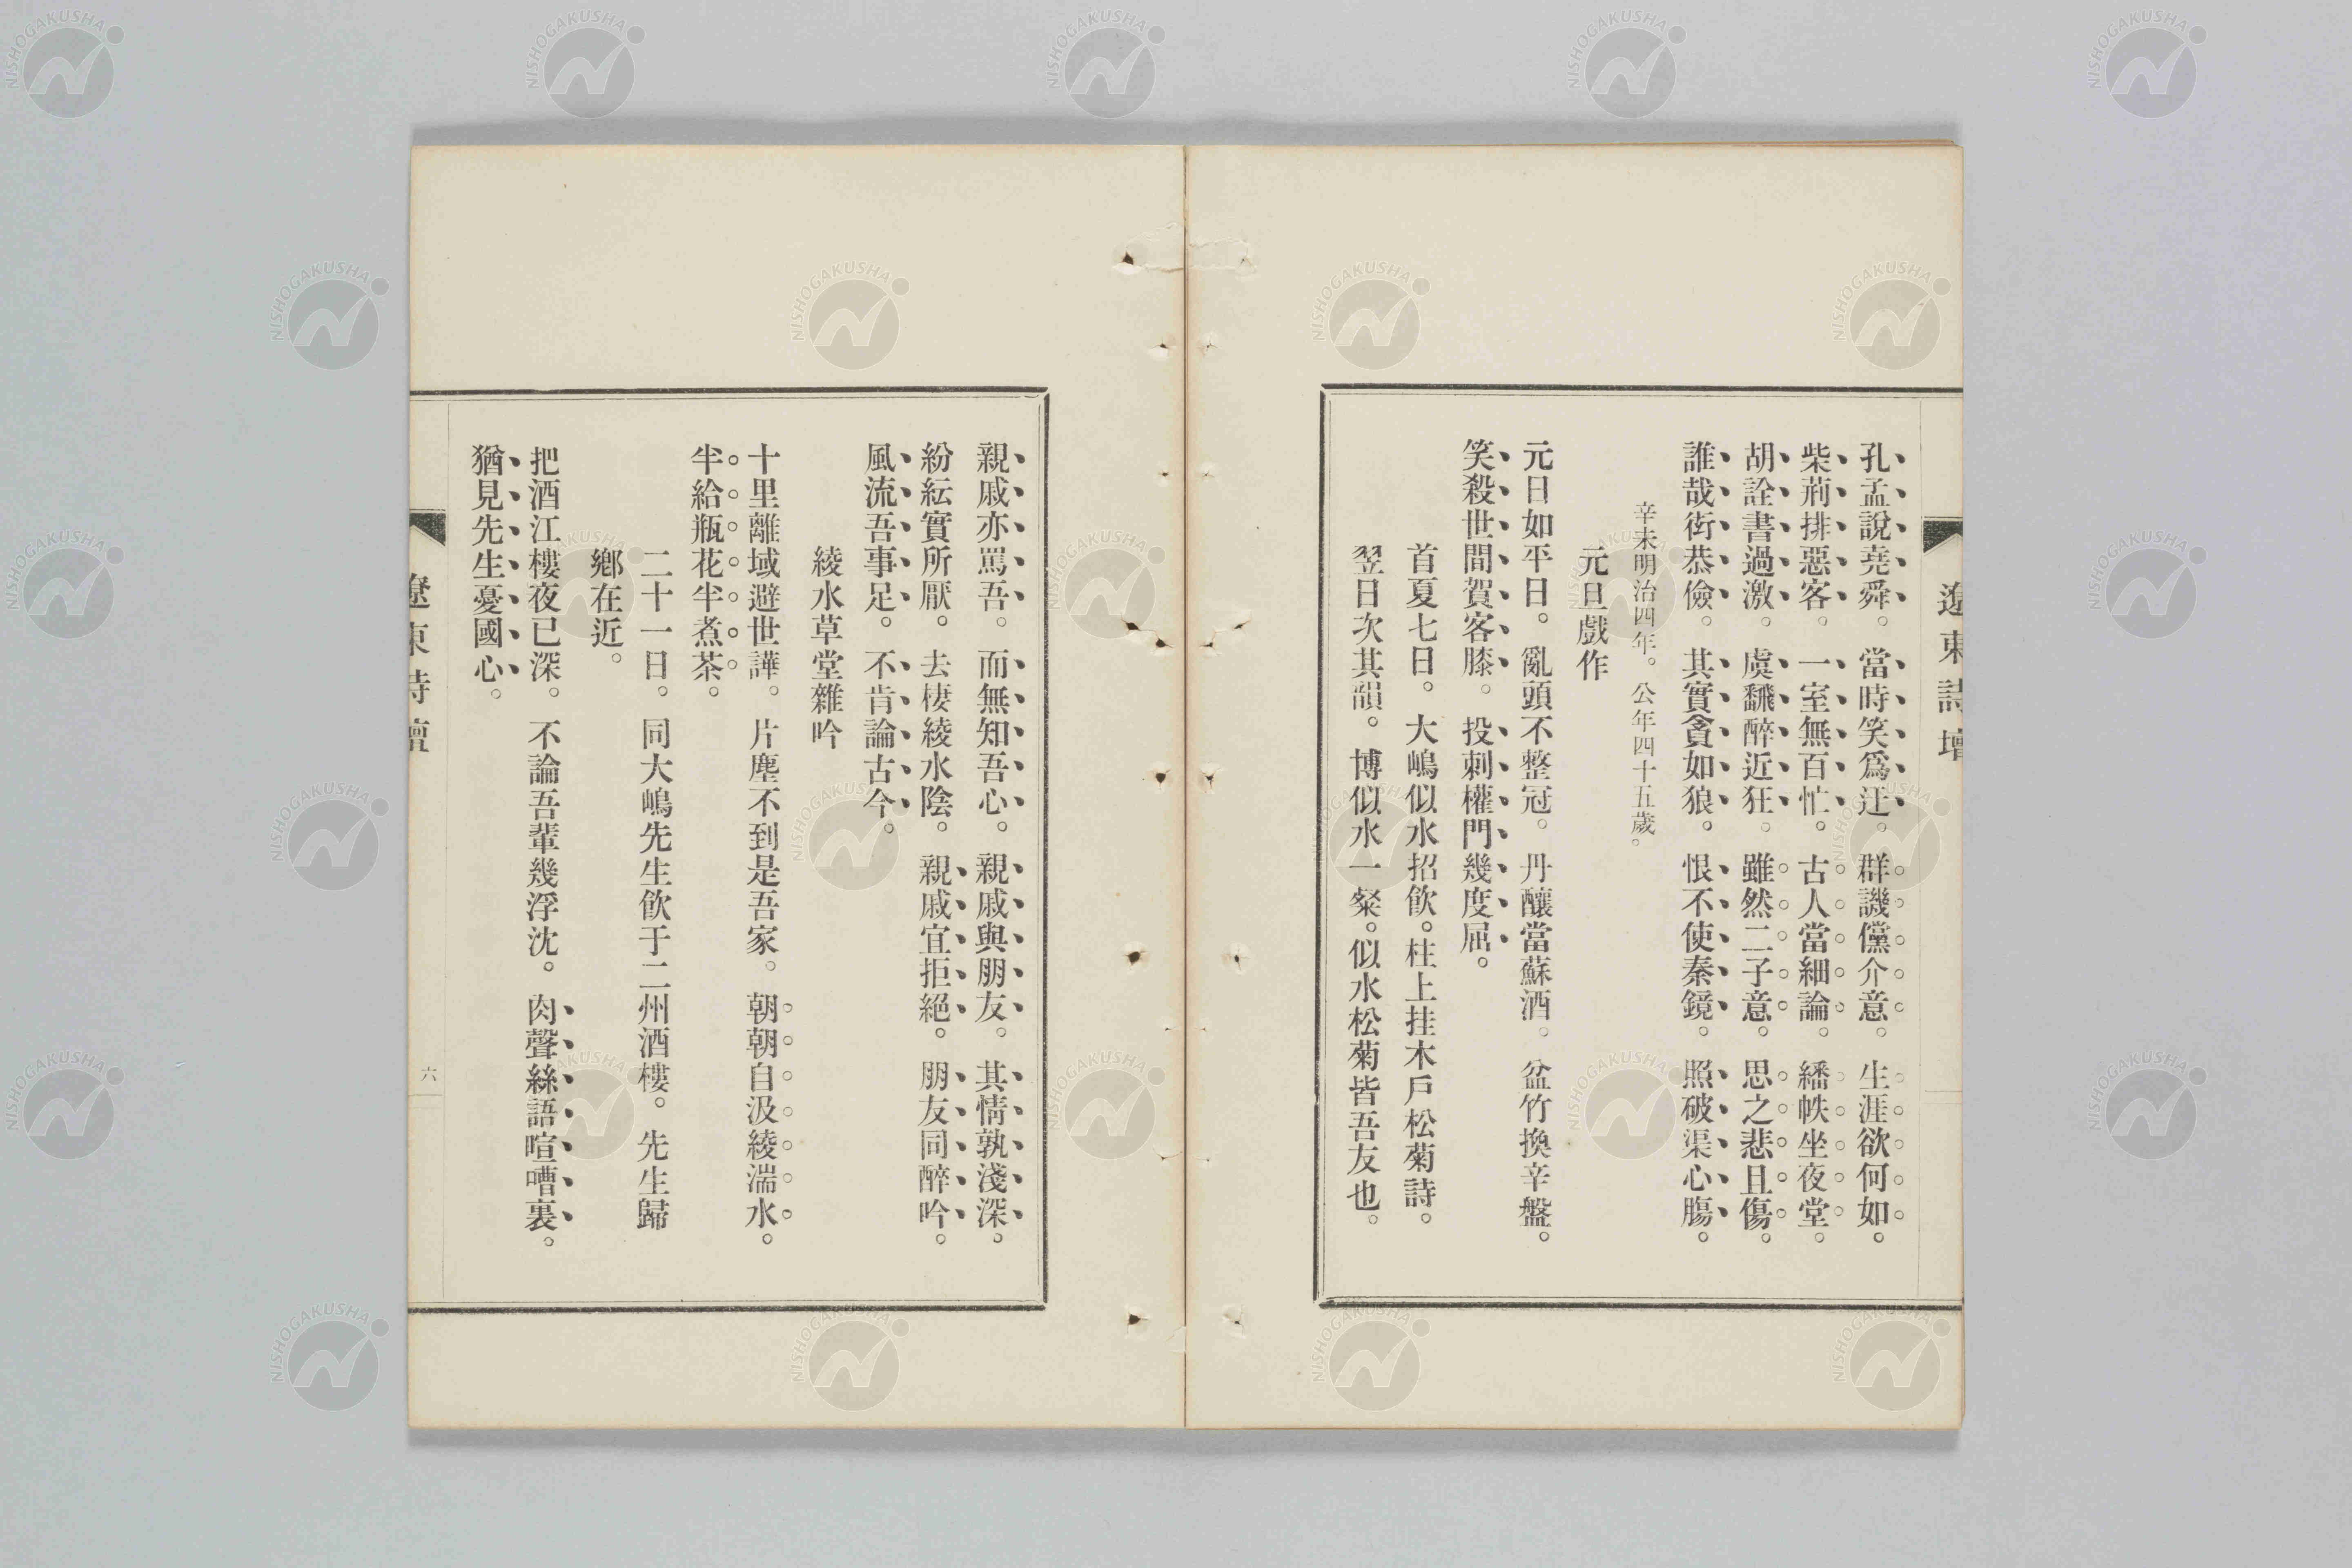 遼東詩壇
孔孟說堯舜。當時笑爲迂。群譏儻介意。生涯欲何如。
柴荊排惡客。一室無百忙。古人當細論。繙帙坐夜堂。
胡詮書過激。虞翻醉近狂。雖然二子意。思之悲且傷。
誰哉衒恭儉。其實貪如狼。恨不使秦鏡。照破渠心膓。
辛未明治四年。公年四十五歲。
元旦戲作
元日如平日。亂頭不整冠。丹釀當蘇酒。盆竹換辛盤。
笑殺世間賀客膝。投刺權門幾度屈。
首夏七日。大嶋似水招飮。柱上挂木戶松菊詩。
翌日次其韻。博似水一粲。似水松菊皆吾友也。
親戚亦罵吾。而無知吾心。親戚與朋友。其情孰淺深。
紛紜實所厭。去棲綾水陰。親戚宜拒絕。朋友同醉吟。
風流吾事足。不肯論古今。
綾水草堂雜吟
十里離城避世譁。片塵不到是吾家。朝朝自汲綾湍水。
半給瓶花半煮茶。
二十一日。同大嶋先生飮于二州酒樓。先生歸
鄉在近。
把酒江樓夜已深。不論吾輩幾浮沈。肉聲絲語喧嘈裏。
猶見先生憂國心。
遼東詩壇
六
NISHOGAKUSHA